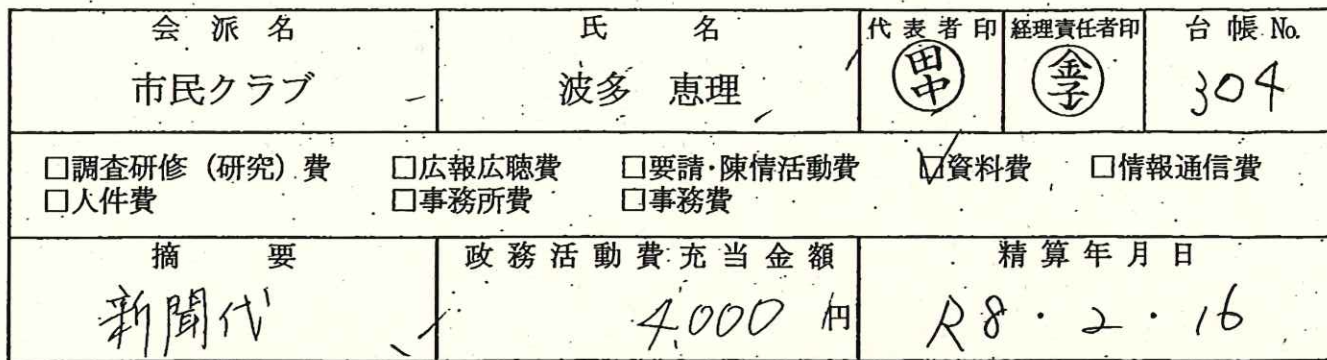 会派名 氏名 代表者印 経理責任者印 台帳No.
市民クラブ 波多 恵理 田中 金子 304
□調査研修(研究)費 □広報広聴費 □要請・陳情活動費 ☑資料費 □情報通信費
□人件費 □事務所費 □事務費
摘要 政務活動費充当金額 精算年月日
新聞代 4,000 円 R8・2・16